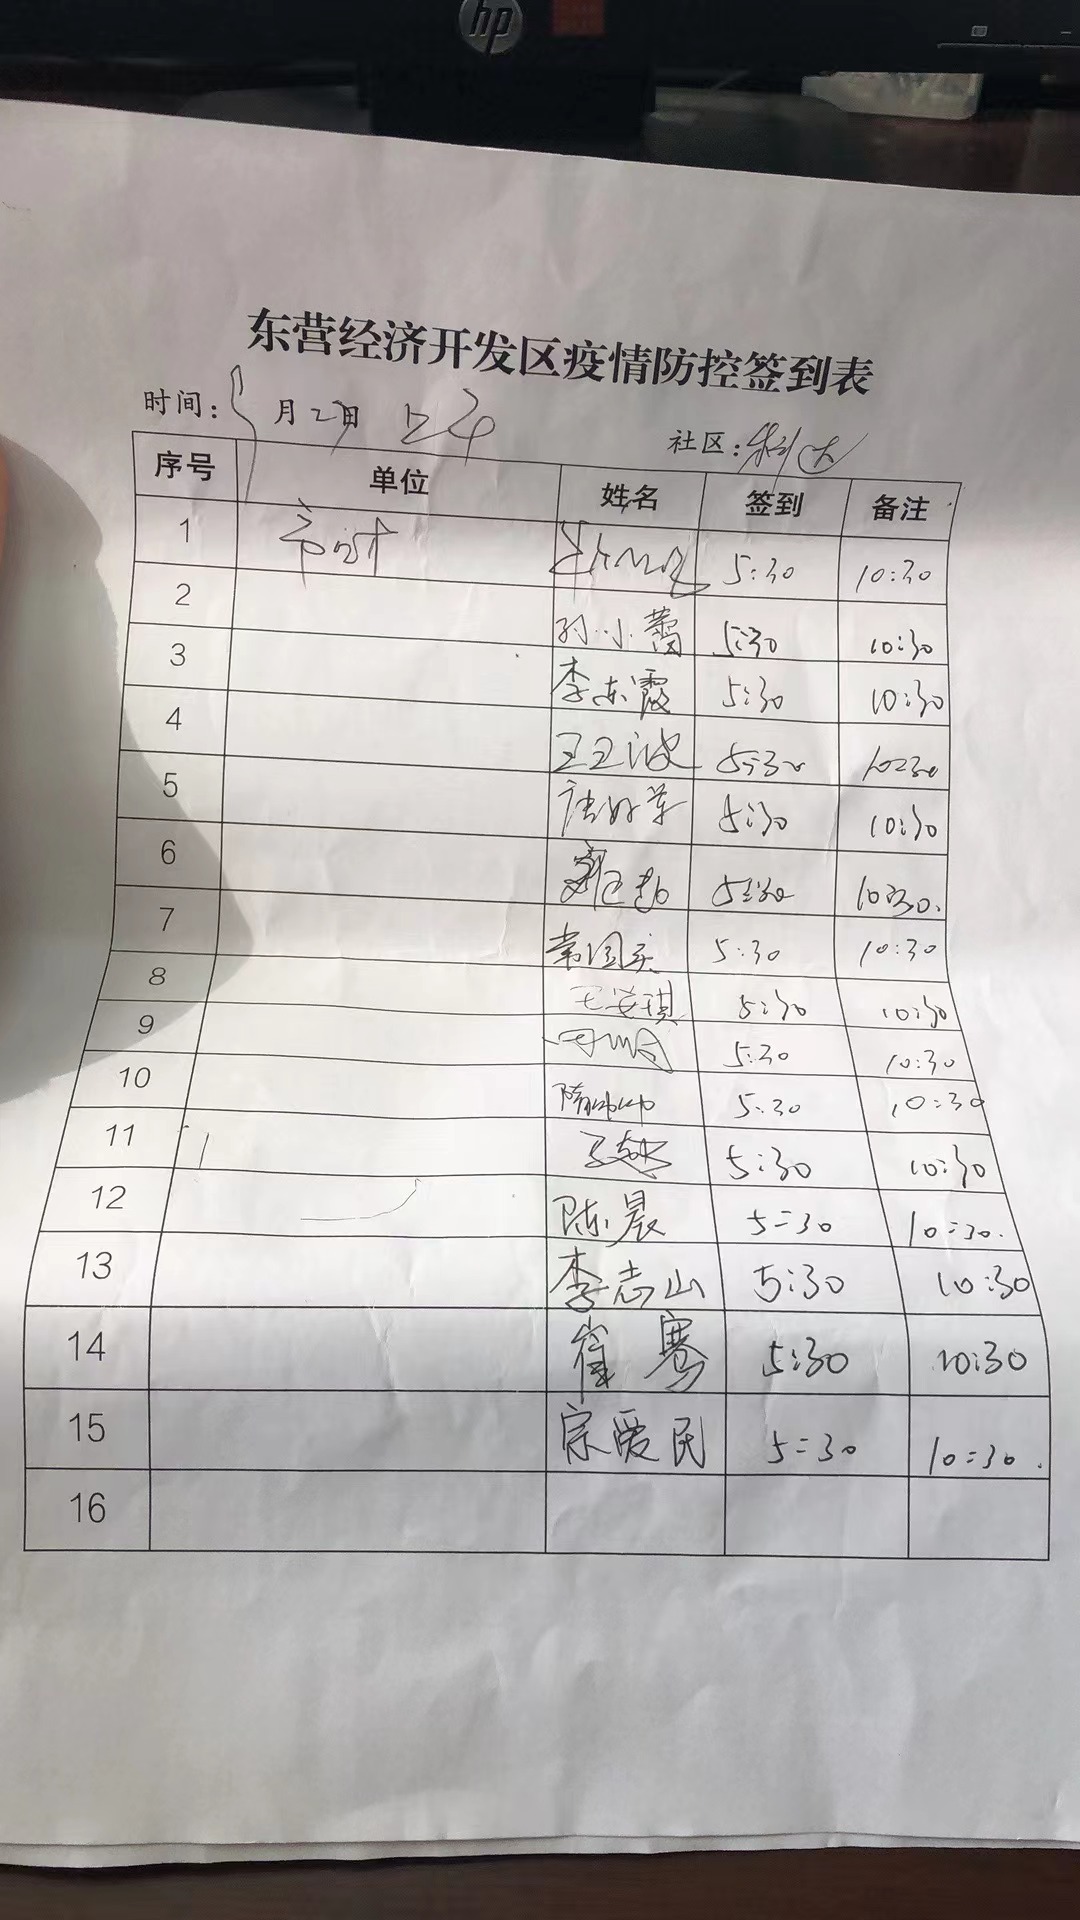 hp
东营经济开发区疫情防控签到表
时间: 5月2日 上午
社区: 科达
序号 单位 姓名 签到 备注
1 5:30 10:30
2 孙小蕾 5:30 10:30
3 李东霞 5:30 10:30
4 王玉波 5:30 10:30
5 5:30 10:30
6 5:30 10:30
7 常国庆 5:30 10:30
8 王安琪 5:30 10:30
9 5:30 10:30
10 隋帅帅 5:30 10:30
11 5:30 10:30
12 陈晨 5:30 10:30.
13 李志山 5:30 10:30
14 崔骞 5:30 10:30
15 宗爱民 5:30 10:30.
16